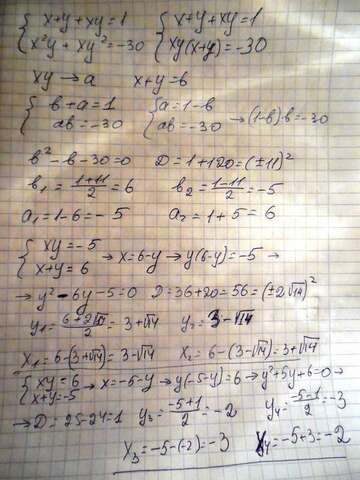 { x+y+xy=1 { x+y+xy=1
{ x²y + xy² = -30 { xy(x+y)=-30
xy → a x+y=b
{ b+a=1 { a=1-b
{ ab=-30 { ab=-30 → (1-b)·b=-30
b²-b-30=0 D=1+120=(±11)²
b₁ = (1+11)/2 = 6 b₂ = (1-11)/2 = -5
a₁=1-6=-5 a₂=1+5=6
{ xy=-5
{ x+y=6 → x=6-y → y(6-y)=-5 →
→ y²-6y-5=0 D=36+20=56=(±2√14)²
y₁ = (6+2√14)/2 = 3+√14 y₂ = 3-√14
x₁=6-(3+√14)=3-√14 x₂=6-(3-√14)=3+√14
{ xy=6
{ x+y=-5 → x=-5-y → y(-5-y)=6 → y²+5y+6=0 →
→ D=25-24=1 y₃ = (-5+1)/2 = -2 y₄ = (-5-1)/2 = -3
x₃=-5-(-2)=-3 x₄=-5+3=-2